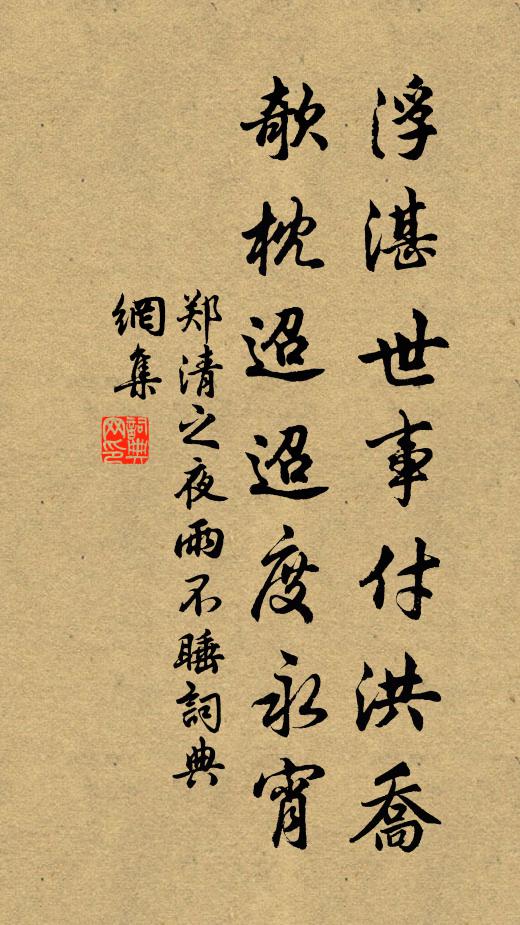 浮湛世事付洪喬
欹枕迢迢度永宵
郑清之夜雨不睡詞典
網集
詞典
网印